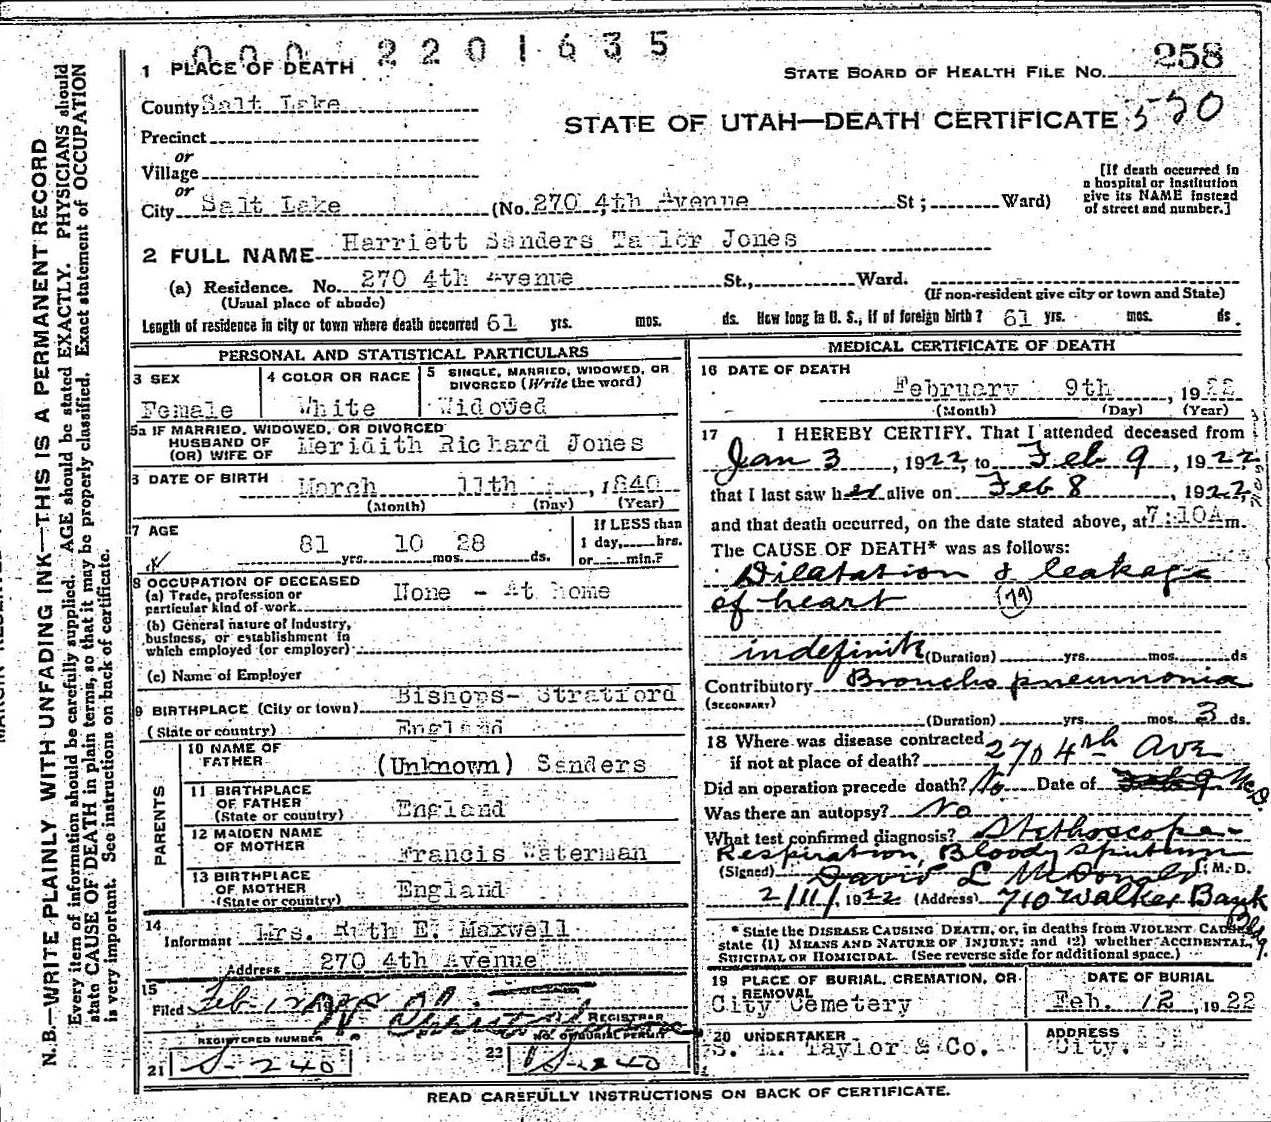 000 2201635
1 PLACE OF DEATH
STATE BOARD OF HEALTH FILE NO. 258
County Salt Lake
STATE OF UTAH—DEATH CERTIFICATE 520
Precinct
or
Village
or
City Salt Lake (No. 270 4th Avenue St; Ward)
[If death occurred in
a hospital or institution
give its NAME instead
of street and number.]
2 FULL NAME Harriett Sanders Taylor Jones
(a) Residence. No. 270 4th Avenue St., Ward.
(Usual place of abode) (If non-resident give city or town and State)
Length of residence in city or town where death occurred 61 yrs. mos. ds. How long in U. S., if of foreign birth? 61 yrs. mos. ds.
PERSONAL AND STATISTICAL PARTICULARS
3 SEX
Female
4 COLOR OR RACE
White
5 SINGLE, MARRIED, WIDOWED, OR
DIVORCED (Write the word)
Widowed
5a IF MARRIED, WIDOWED, OR DIVORCED
HUSBAND OF
(OR) WIFE OF Meridith Richard Jones
6 DATE OF BIRTH March 11th, 1840
(Month) (Day) (Year)
7 AGE
81 yrs. 10 mos. 28 ds.
If LESS than
1 day, hrs.
or min.?
8 OCCUPATION OF DECEASED
(a) Trade, profession or
particular kind of work None - At home
(b) General nature of industry,
business, or establishment in
which employed (or employer)
(c) Name of Employer
9 BIRTHPLACE (City or town) Bishops- Stratford
(State or country) England
PARENTS
10 NAME OF
FATHER (Unknown) Sanders
11 BIRTHPLACE
OF FATHER
(State or country) England
12 MAIDEN NAME
OF MOTHER Francis Waterman
13 BIRTHPLACE
OF MOTHER
(State or country) England
14
Informant Mrs. Ruth E. Maxwell
Address 270 4th Avenue
15
Filed Feb
REGISTRAR
REGISTERED NUMBER
21 S-240
NO. OF BURIAL PERMIT
22 S-240
MEDICAL CERTIFICATE OF DEATH
16 DATE OF DEATH
February 9th, 1922
(Month) (Day) (Year)
17 I HEREBY CERTIFY. That I attended deceased from
Jan 3, 1922, to Feb 9, 1922
that I last saw her alive on Feb 8, 1922,
and that death occurred, on the date stated above, at 7:10A m.
The CAUSE OF DEATH* was as follows:
Dilatation & leakage
of heart (79)
indefinite (Duration) yrs. mos. ds
Contributory Broncho pneumonia
(SECONDARY)
(Duration) yrs. mos. 3 ds.
18 Where was disease contracted
if not at place of death? 270 4th Ave
Did an operation precede death? No. Date of Feb 9 McD.
Was there an autopsy? No
What test confirmed diagnosis? Stethoscope-
Respiration, Bloody Sputum
(Signed) David L McDonald, M. D.
2/11/, 1922 (Address) 710 Walker Bank
Bldg.
* State the DISEASE CAUSING DEATH, or, in deaths from VIOLENT CAUSES,
state (1) MEANS AND NATURE OF INJURY; and (2) whether ACCIDENTAL,
SUICIDAL OR HOMICIDAL. (See reverse side for additional space.)
19 PLACE OF BURIAL, CREMATION, OR
REMOVAL
City Cemetery
DATE OF BURIAL
Feb. 12, 1922
20 UNDERTAKER
S. M. Taylor & Co.
ADDRESS
City.
READ CAREFULLY INSTRUCTIONS ON BACK OF CERTIFICATE.
N. B.—WRITE PLAINLY WITH UNFADING INK—THIS IS A PERMANENT RECORD
Every item of information should be carefully supplied. AGE should be stated EXACTLY. PHYSICIANS should
state CAUSE OF DEATH in plain terms, so that it may be properly classified. Exact statement of OCCUPATION
is very important. See instructions on back of certificate.